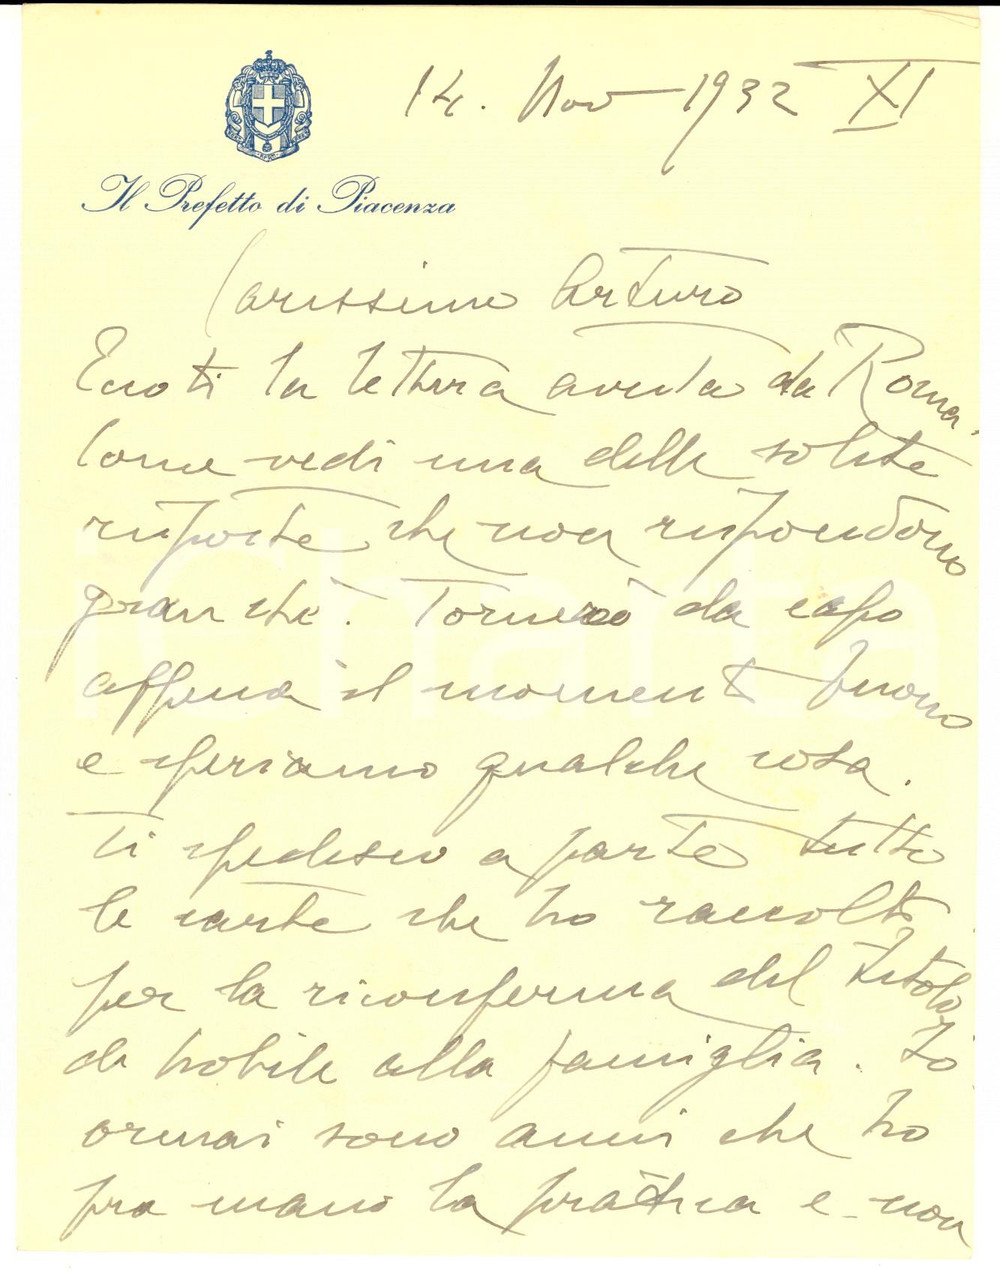 14. Nov 1932 XI
Il Prefetto di Piacenza
Carissimo Arturo
Eccoti la lettera avuta da Roma.
Come vedi una delle solite
risposte che non rispondono
gran ché. Tornerò da capo
appena il momento buono
e speriamo qualche cosa.
Ti spedisco a parte tutte
le carte che ho raccolto
per la riconferma del titolo
di nobile alla famiglia. Io
ormai sono anni che ho
fra mano la pratica e non
iCharta